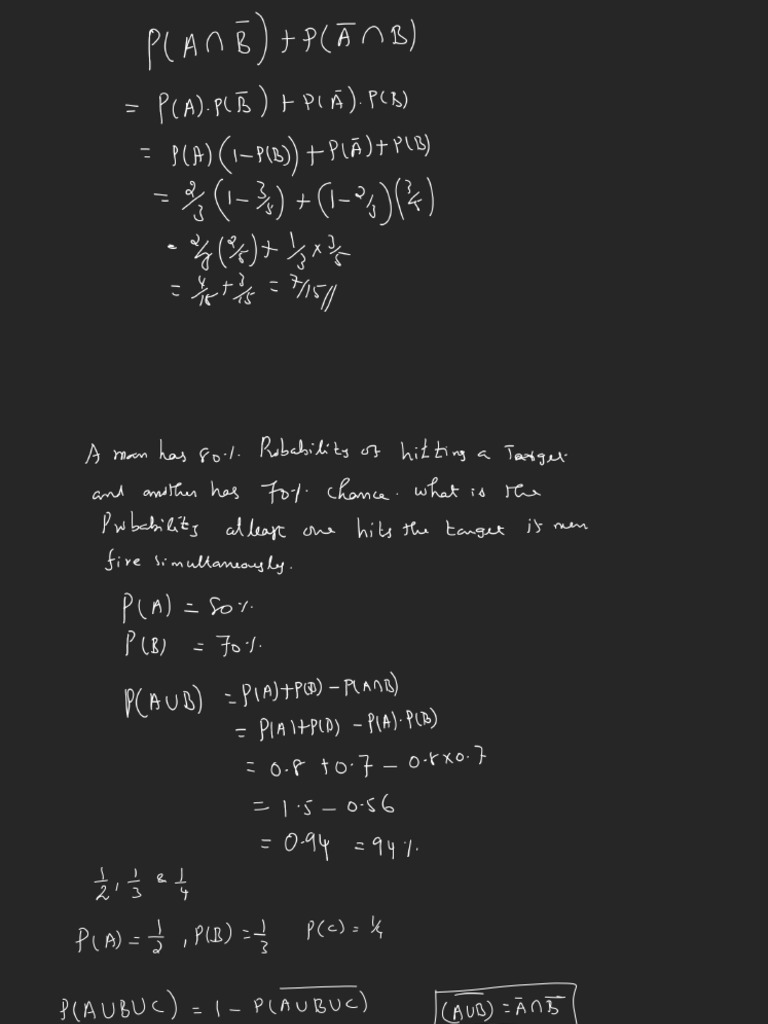 P(A∩B̅) + P(A̅∩B)
= P(A).P(B̅) + P(A̅).P(B)
= P(A)(1-P(B)) + P(A̅)+P(B)
= 2/3 (1-3/5) + (1-2/3)(3/5)
= 2/3 (2/5) + 1/3 × 3/5
= 4/15 + 3/15 = 7/15//
A man has 80%. Probability of hitting a Target
and another has 70% chance. what is the
Probability atleast one hits the target if men
fire simultaneously.
P(A) = 80%.
P(B) = 70%.
P(A∪B) = P(A)+P(B) - P(A∩B)
= P(A)+P(B) - P(A).P(B)
= 0.8 + 0.7 - 0.8×0.7
= 1.5 - 0.56
= 0.94 = 94%.
1/2, 1/3 & 1/4
P(A) = 1/2, P(B) = 1/3 P(C) = 1/4
P(A∪B∪C) = 1 - P(\overline{A∪B∪C}) (\overline{A∪B}) = A̅∩B̅